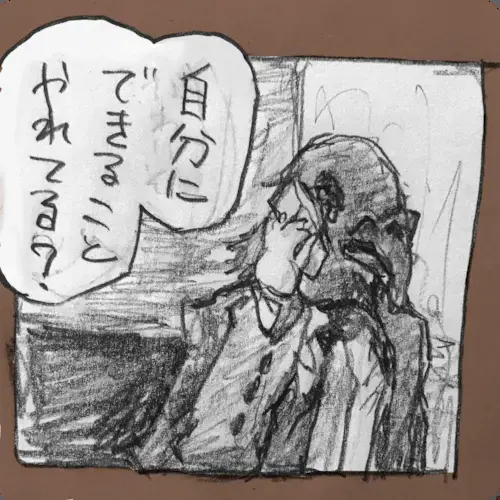 自分に
できること
やれてる?